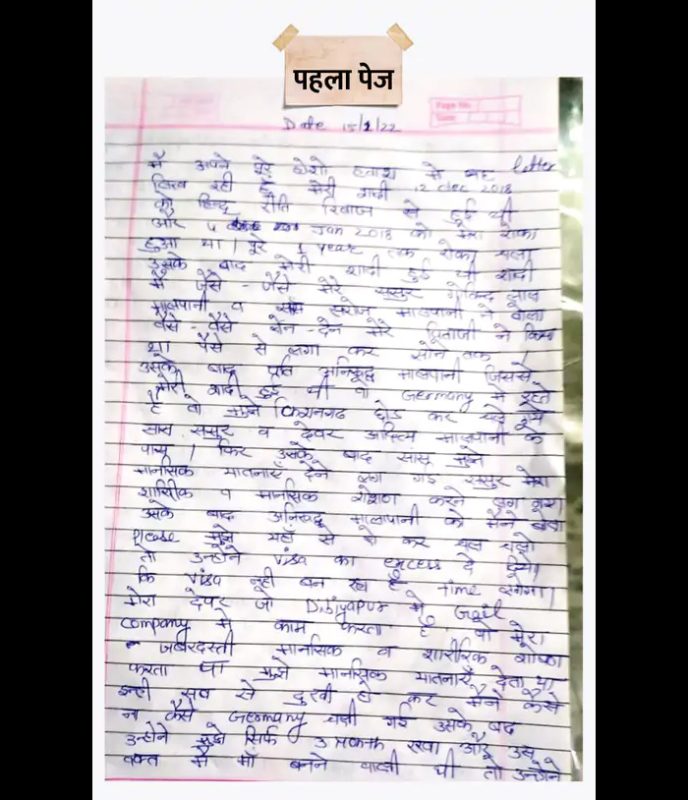 पहला पेज
Page No.
Date
Date 15/2/22
मैं अपने पूरे होशो हवाश में यह letter
लिख रही हूँ मेरी शादी 12 dec 2018
को हिन्दू रीति रिवाज से हुई थी
और Jan 2018 को मेरा रोका
हुआ था। पूरे 1 year तक रोका चला
उसके बाद मेरी शादी हुई थी शादी
में जैसे - जैसे मेरे ससुर गोविन्द लाल
मालपानी व सास सरोज मालपानी ने बोला
वैसे - वैसे लेन - देन मेरे पिताजी ने किया
था पैसे से लगा कर सोने तक।
उसके बाद पति अनिरूद्ध मालपानी जिससे
मेरी शादी हुई थी वो Germany में रहते
है वो मुझे किशनगढ छोड कर चले गये
सास ससुर व देवर मालपानी के
पास। फिर उसके बाद सास मुझे
मानसिक यातनाएँ देने लग गई ससुर मेरा
शारीरिक व मानसिक शोषण करने लग गया
उसके बाद अनिरूद्ध मालपानी को मैंने बोला
please मुझे यहाँ से ले कर चले चलो
तो उन्होंने visa का excuse दे दिया
कि visa नही बन रहा है time लगेगा।
मेरा देवर जो Dibiyapur में Gail
company में काम करता है, वो मेरा
जबरदस्ती मानसिक व शारीरिक शोषण
करता था मुझे मानसिक यातनाएँ देता था
इन्ही सब से दुखी हो कर मैंने कैसे
न कैसे Germany चली गई उसके बाद
उन्होंने मुझे सिर्फ 3 Month रखा और उस
वक्त मैं माँ बनने वाली थी तो उन्होंने